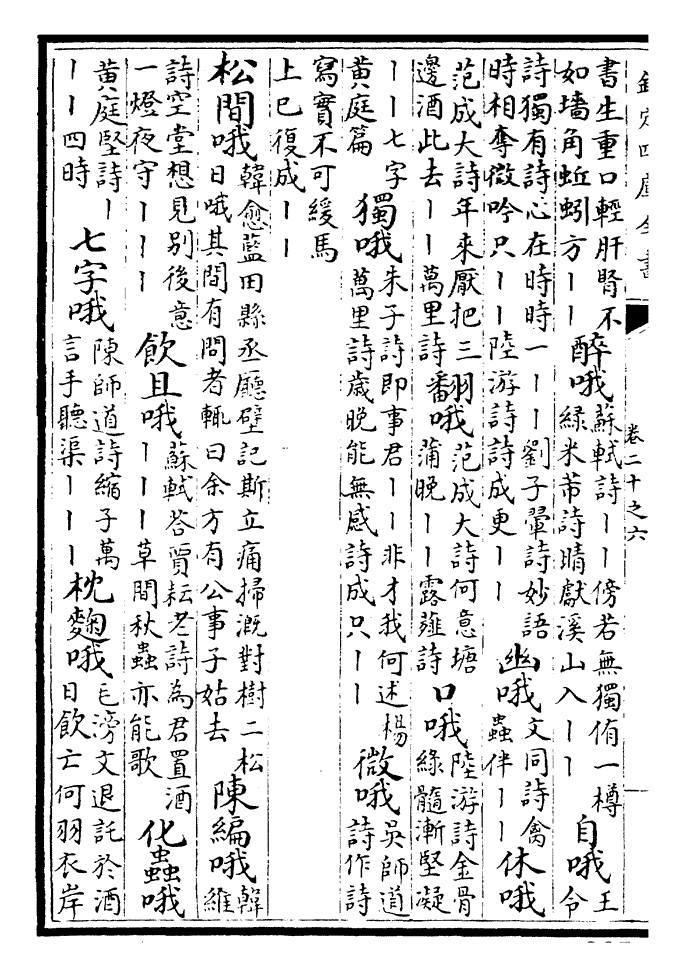 欽定四庫全書
卷二十之六
書生重口輕肝腎不
如墻角蚯蚓方丨丨
醉哦
蘇軾詩丨丨傍若無獨侑一樽
緑米芾詩晴獻溪山入丨丨
自哦
王
令
詩獨有詩心在時時一丨丨劉子翬詩妙語
時相奪微吟只丨丨陸游詩詩成更丨丨
幽哦
文同詩禽
蟲伴丨丨
休哦
范成大詩年來厭把三
邊酒此去丨丨萬里詩
翻哦
范成大詩何意塘
蒲晚丨丨露薤詩
口哦
陸游詩金骨
綠髓漸堅凝
丨丨七字
黄庭篇
獨哦
朱子詩即事君丨丨非才我何述楊
萬里詩歲晚能無感詩成只丨丨
微哦
吳師道
詩作詩
寫實不可緩馬
上已復成丨丨
松間哦
韓愈藍田縣丞廳壁記斯立痛掃溉對樹二松
日哦其間有問者輒曰余方有公事子姑去
陳編哦
韓
維
詩空堂想見别後意
一燈夜守丨丨丨
飲且哦
蘇軾荅賈耘老詩為君置酒
丨丨丨草間秋蟲亦能歌
化蟲哦
黄庭堅詩丨
丨丨四時
七字哦
陳師道詩縮子萬
言手聽渠丨丨丨
枕麴哦
毛滂文退託於酒
日飲亡何羽衣岸